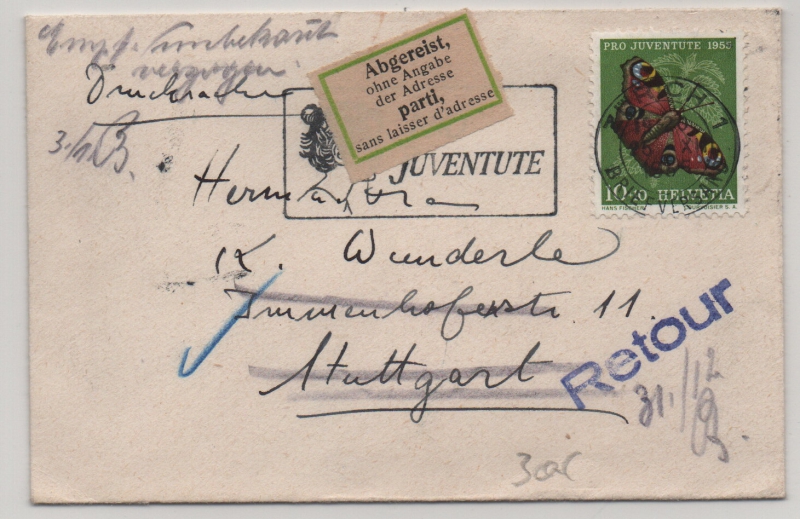 Empf. unbekannt
verzogen.
Drucksache
3./1.
Abgereist,
ohne Angabe
der Adresse
parti,
sans laisser d'adresse
JUVENTUTE
PRO JUVENTUTE 1953
10+10 HELVETIA
HANS FISCHER COURVOISIER S. A.
ZÜRICH 1
Herrn
K. Wunderle
Immenhoferstr 11.
Stuttgart
Retour
31./12